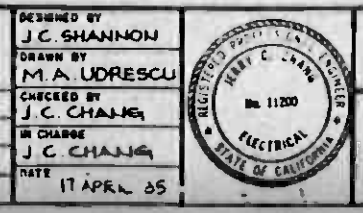 DESIGNED BY
J.C. SHANNON
DRAWN BY
M.A. UDRESCU
CHECKED BY
J.C. CHANG
IN CHARGE
J.C. CHANG
DATE
17 APRIL 85
REGISTERED PROFESSIONAL ENGINEER
JERRY C. CHANG
No. 11200
ELECTRICAL
STATE OF CALIFORNIA